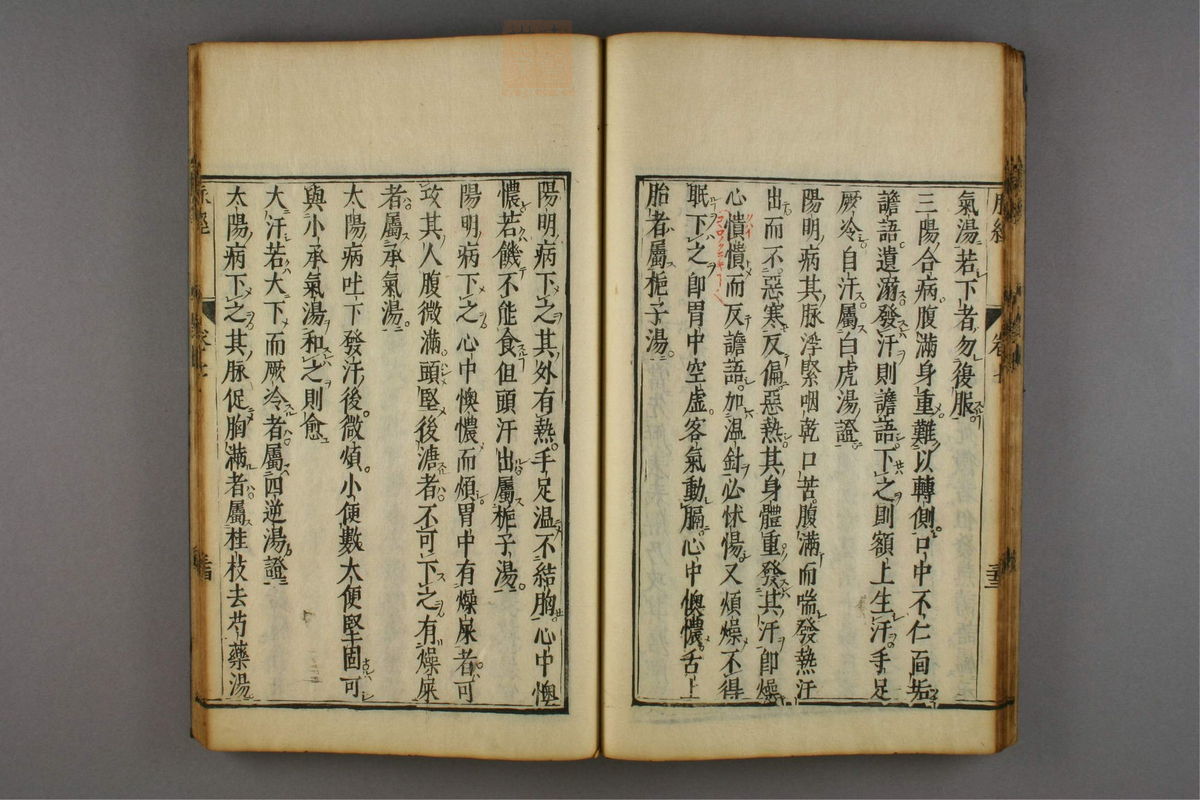 氣湯若下者勿後服
三陽合病腹滿身重難以轉側口中不仁面垢
譫語遺溺發汗則譫語下之則額上生汗手足
厥冷自汗屬白虎湯證
陽明病其脉浮緊咽乾口苦腹滿而喘發熱汗
出而不惡寒反偏惡熱其身體重發其汗卽燥
心憒憒而反譫語加温針必怵惕又煩燥不得
眠下之卽胃中空虛客氣動膈心中懊憹舌上
胎者屬梔子湯
陽明病下之其外有熱手足温不結胸心中懊
憹若饑不能食但頭汗出屬梔子湯
陽明病下之心中懊憹而煩胃中有燥屎者可
攻其人腹微滿頭堅後溏者不可下之有燥屎
者屬承氣湯
太陽病吐下發汗後微煩小便數大便堅固可
與小承氣湯和之則愈
大汗若大下而厥冷者屬四逆湯證
太陽病下之其脉促胸滿者屬桂枝去芍藥湯
脉經
卷七